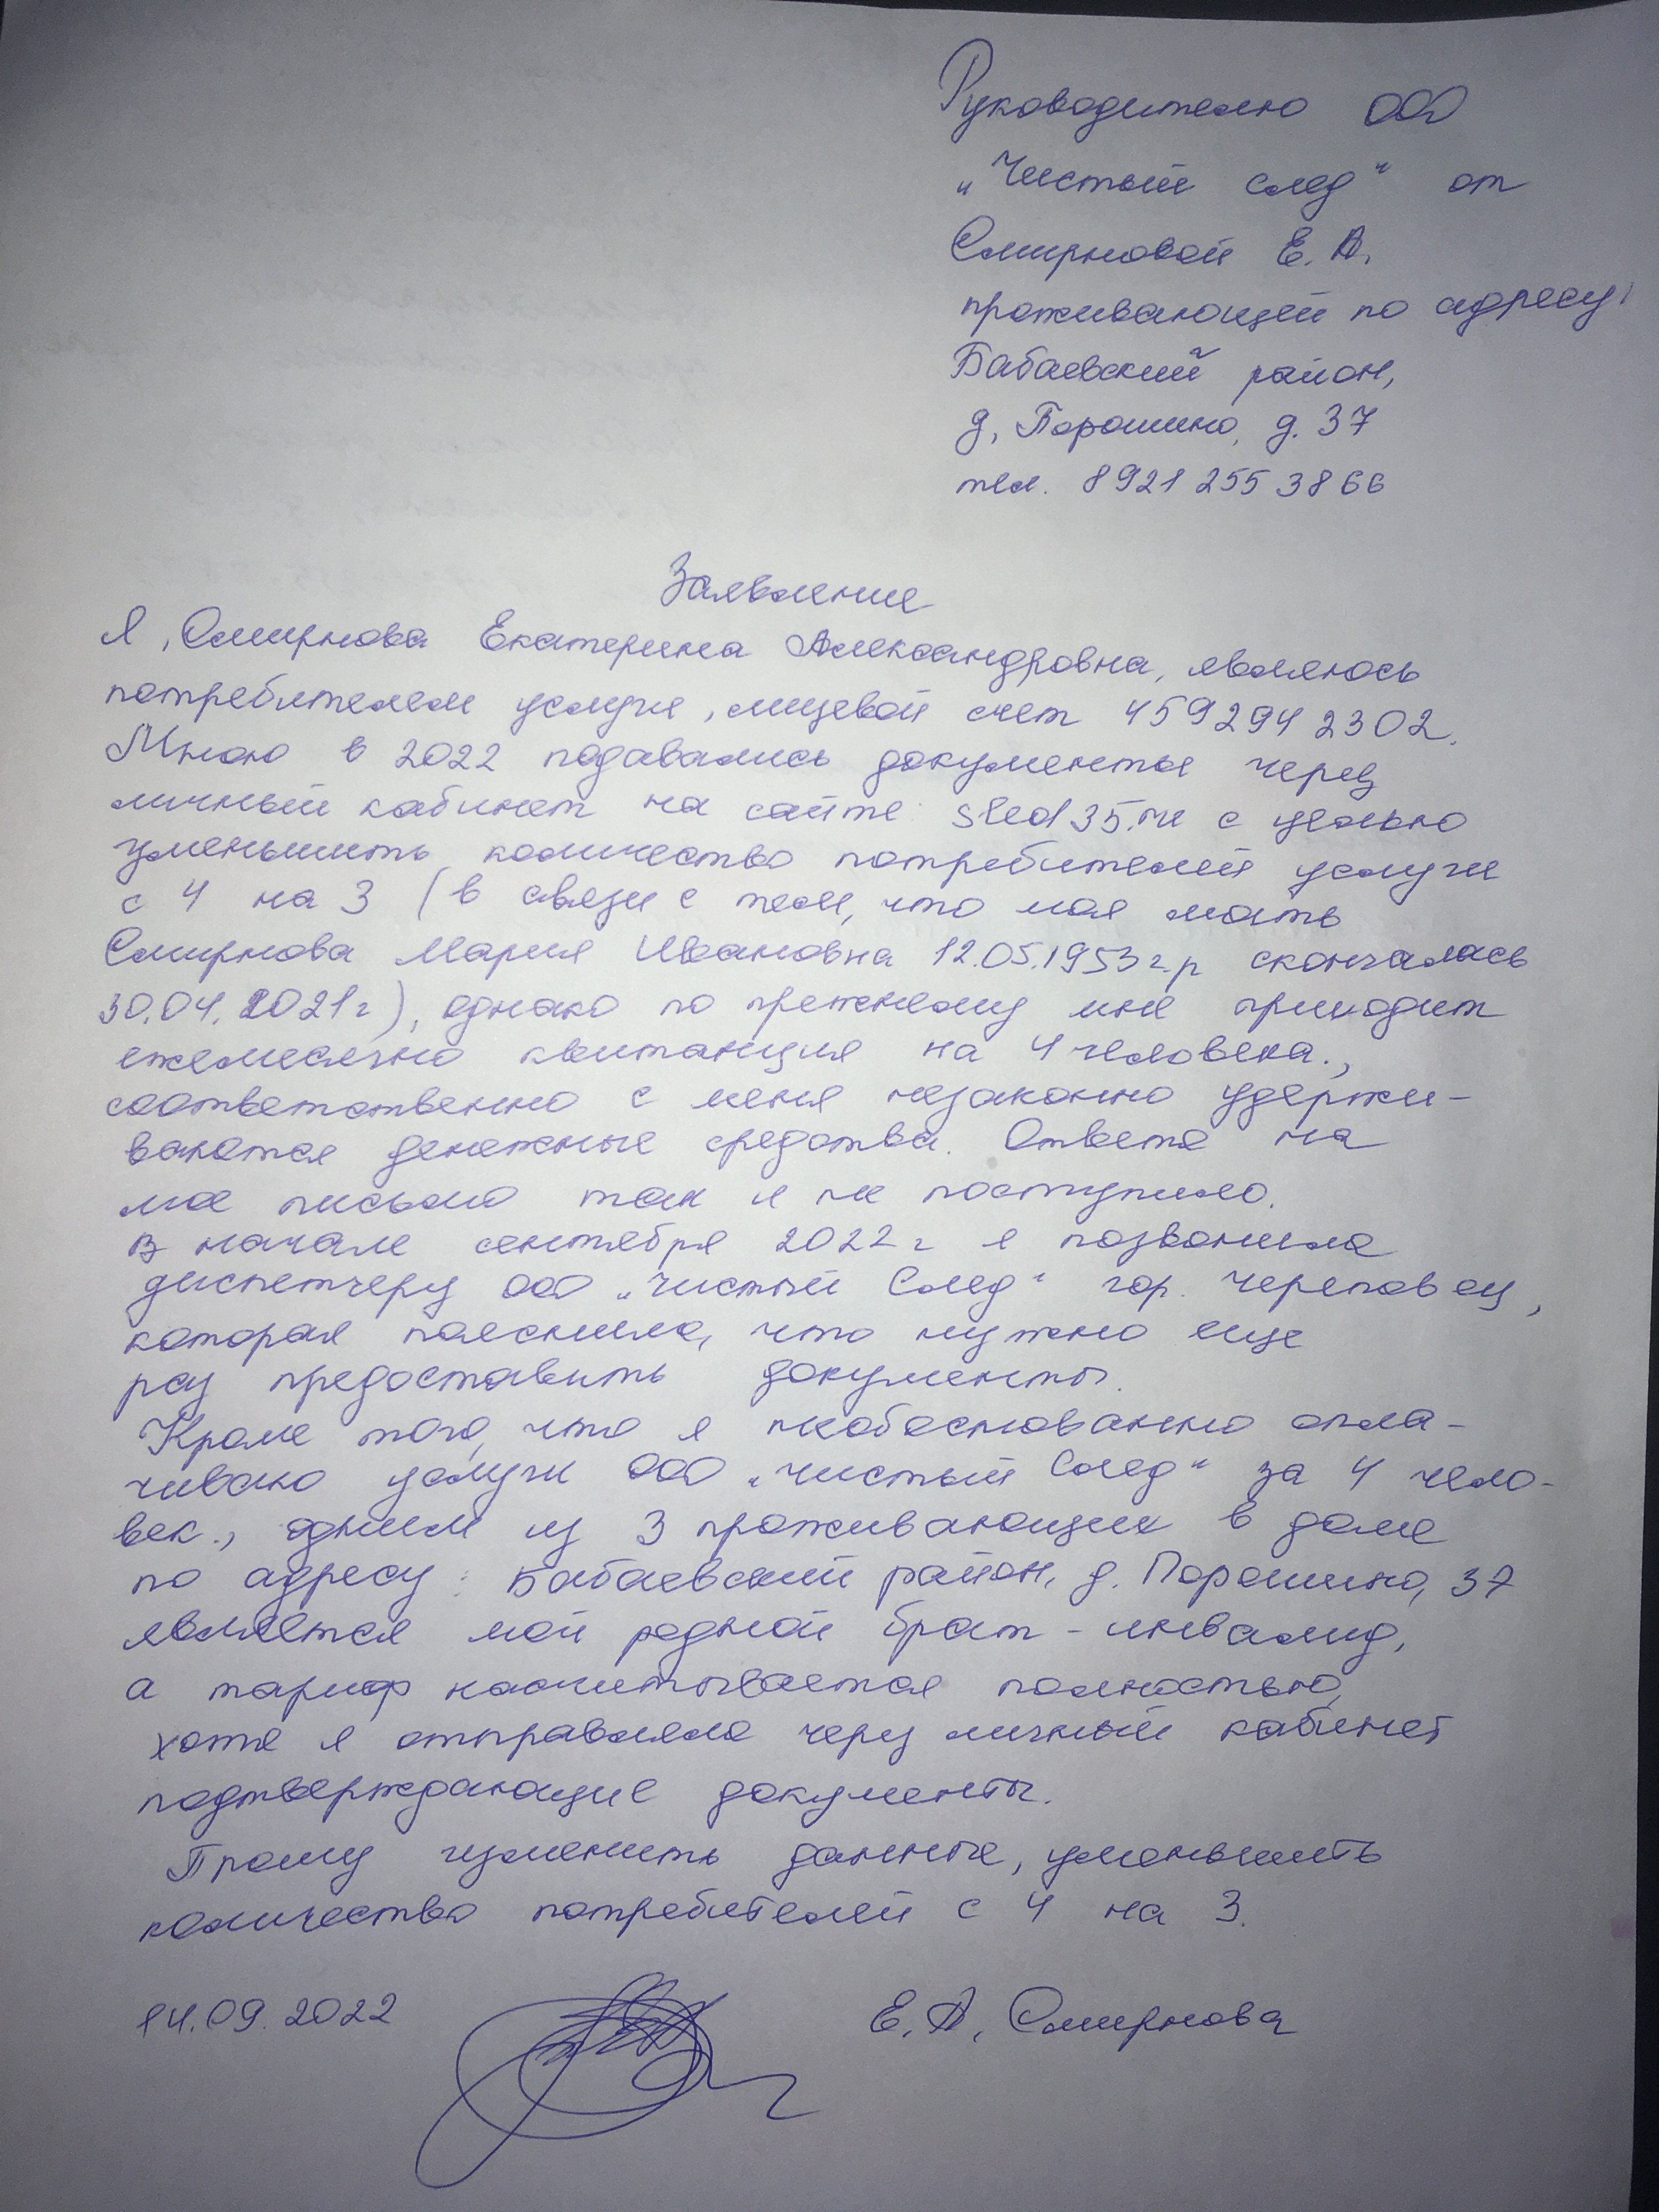 Руководителю ООО
"Чистый след" от
Смирновой Е. А.
проживающей по адресу:
Бабаевский район,
д. Порошино, д. 37
тел. 8921 255 38 66
Заявление
Я, Смирнова Екатерина Александровна, являюсь
потребителем услуги, лицевой счет 459294 2302.
Мною в 2022 подавались документы через
личный кабинет на сайте: sled35.ru с целью
уменьшить количество потребителей услуги
с 4 на 3 (в связи с тем, что моя мать
Смирнова Мария Ивановна 12.05.1953 г.р скончалась
30.04.2021г), однако по прежнему мне приходит
ежемесячно квитанция на 4 человека.,
соответственно с меня незаконно удержи-
ваются денежные средства. Ответа на
мое письмо так и не поступило.
В начале сентября 2022 г я позвонила
диспетчеру ООО "Чистый След" гор. Череповец,
которая пояснила, что нужно еще
раз предоставить документы.
Кроме того, что я необоснованно опла-
чиваю услуги ООО "Чистый След" за 4 чело-
век., одним из 3 проживающих в доме
по адресу: Бабаевский район, д. Порошино, 37
является мой родной брат - инвалид,
а тариф насчитывается полностью,
хотя я отправляла через личный кабинет
подтверждающие документы.
Прошу изменить данные, уменьшить
количество потребителей с 4 на 3.
14.09.2022 Е. А. Смирнова